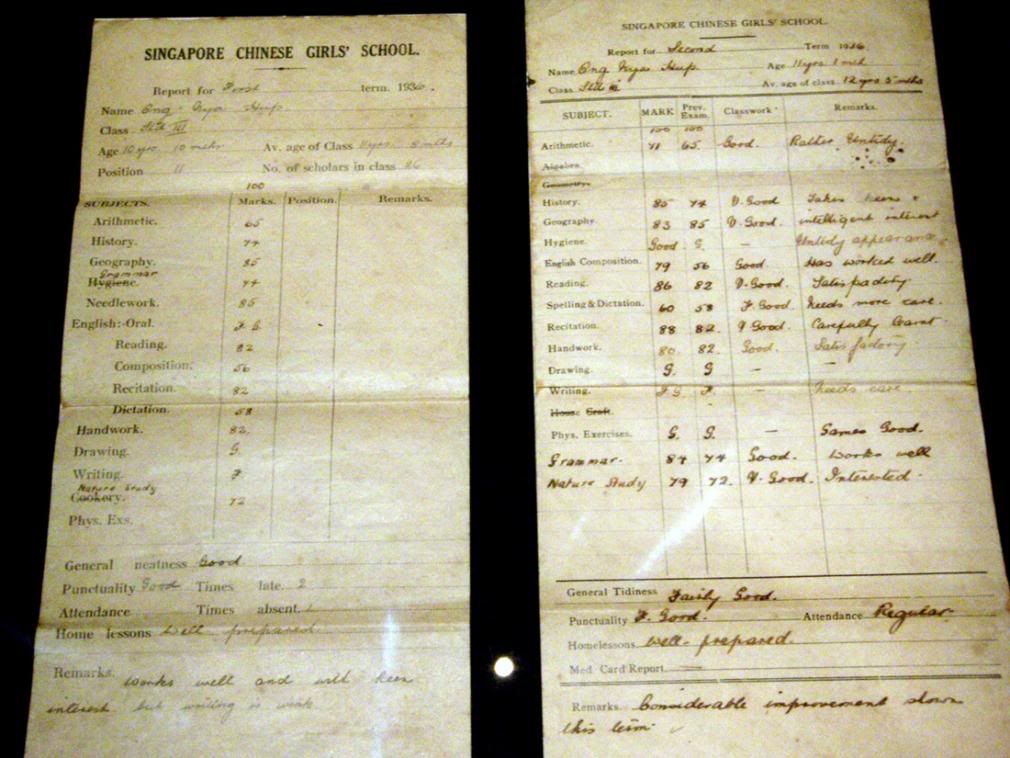 SINGAPORE CHINESE GIRLS' SCHOOL.
Report for First term. 1936.
Name Ong Nya Hup
Class Std III
Age 10 yrs 10 mths Av. age of Class 11 yrs 8 mths
Position 11 No. of scholars in class 26
100
SUBJECTS. Marks. Position. Remarks.
Arithmetic. 65
History. 74
Geography. 85
Grammar
Hygiene. 74
Needlework. 85
English:-Oral. F G
Reading. 82
Composition. 56
Recitation. 82
Dictation. 58
Handwork. 82.
Drawing. G.
Writing. F
Nature Study
Cookery. 72
Phys. Exs.
General neatness Good
Punctuality Good Times late. 2
Attendance Times absent.
Home lessons Well prepared
Remarks. Works well and with keen
interest but writing is weak
SINGAPORE CHINESE GIRLS' SCHOOL.
Report for Second Term 1936.
Name Ong Nya Hup Age 11 yrs 1 mth
Class Std III Av. age of class 12 yrs 5 mths
SUBJECT. MARK Prev. Exam. Classwork. Remarks.
100 100
Arithmetic. 71 65 Good. Rather Untidy.
Algebra.
Geometry.
History. 85 74 V. Good Takes keen &
Geography. 83 85 V. Good. intelligent interest
Hygiene. Good G. — Untidy appearance
English Composition. 79 56 Good. Has worked well.
Reading. 86 82 V. Good. Satisfactory
Spelling & Dictation. 60 58 F. Good. Needs more care.
Recitation. 88 82. V. Good. Carefully learnt.
Handwork. 80. 82. Good. Satisfactory
Drawing. G. G — —
Writing. F G. F. — Needs care
House Craft.
Phys. Exercises. G. G. — Games Good.
Grammar. 84 74 Good. Works well
Nature Study 79 72. V. Good. Interested.
General Tidiness Fairly Good.
Punctuality F. Good. Attendance Regular.
Homelessons well-prepared.
Med. Card Report. —
Remarks. Considerable improvement shown
this term.